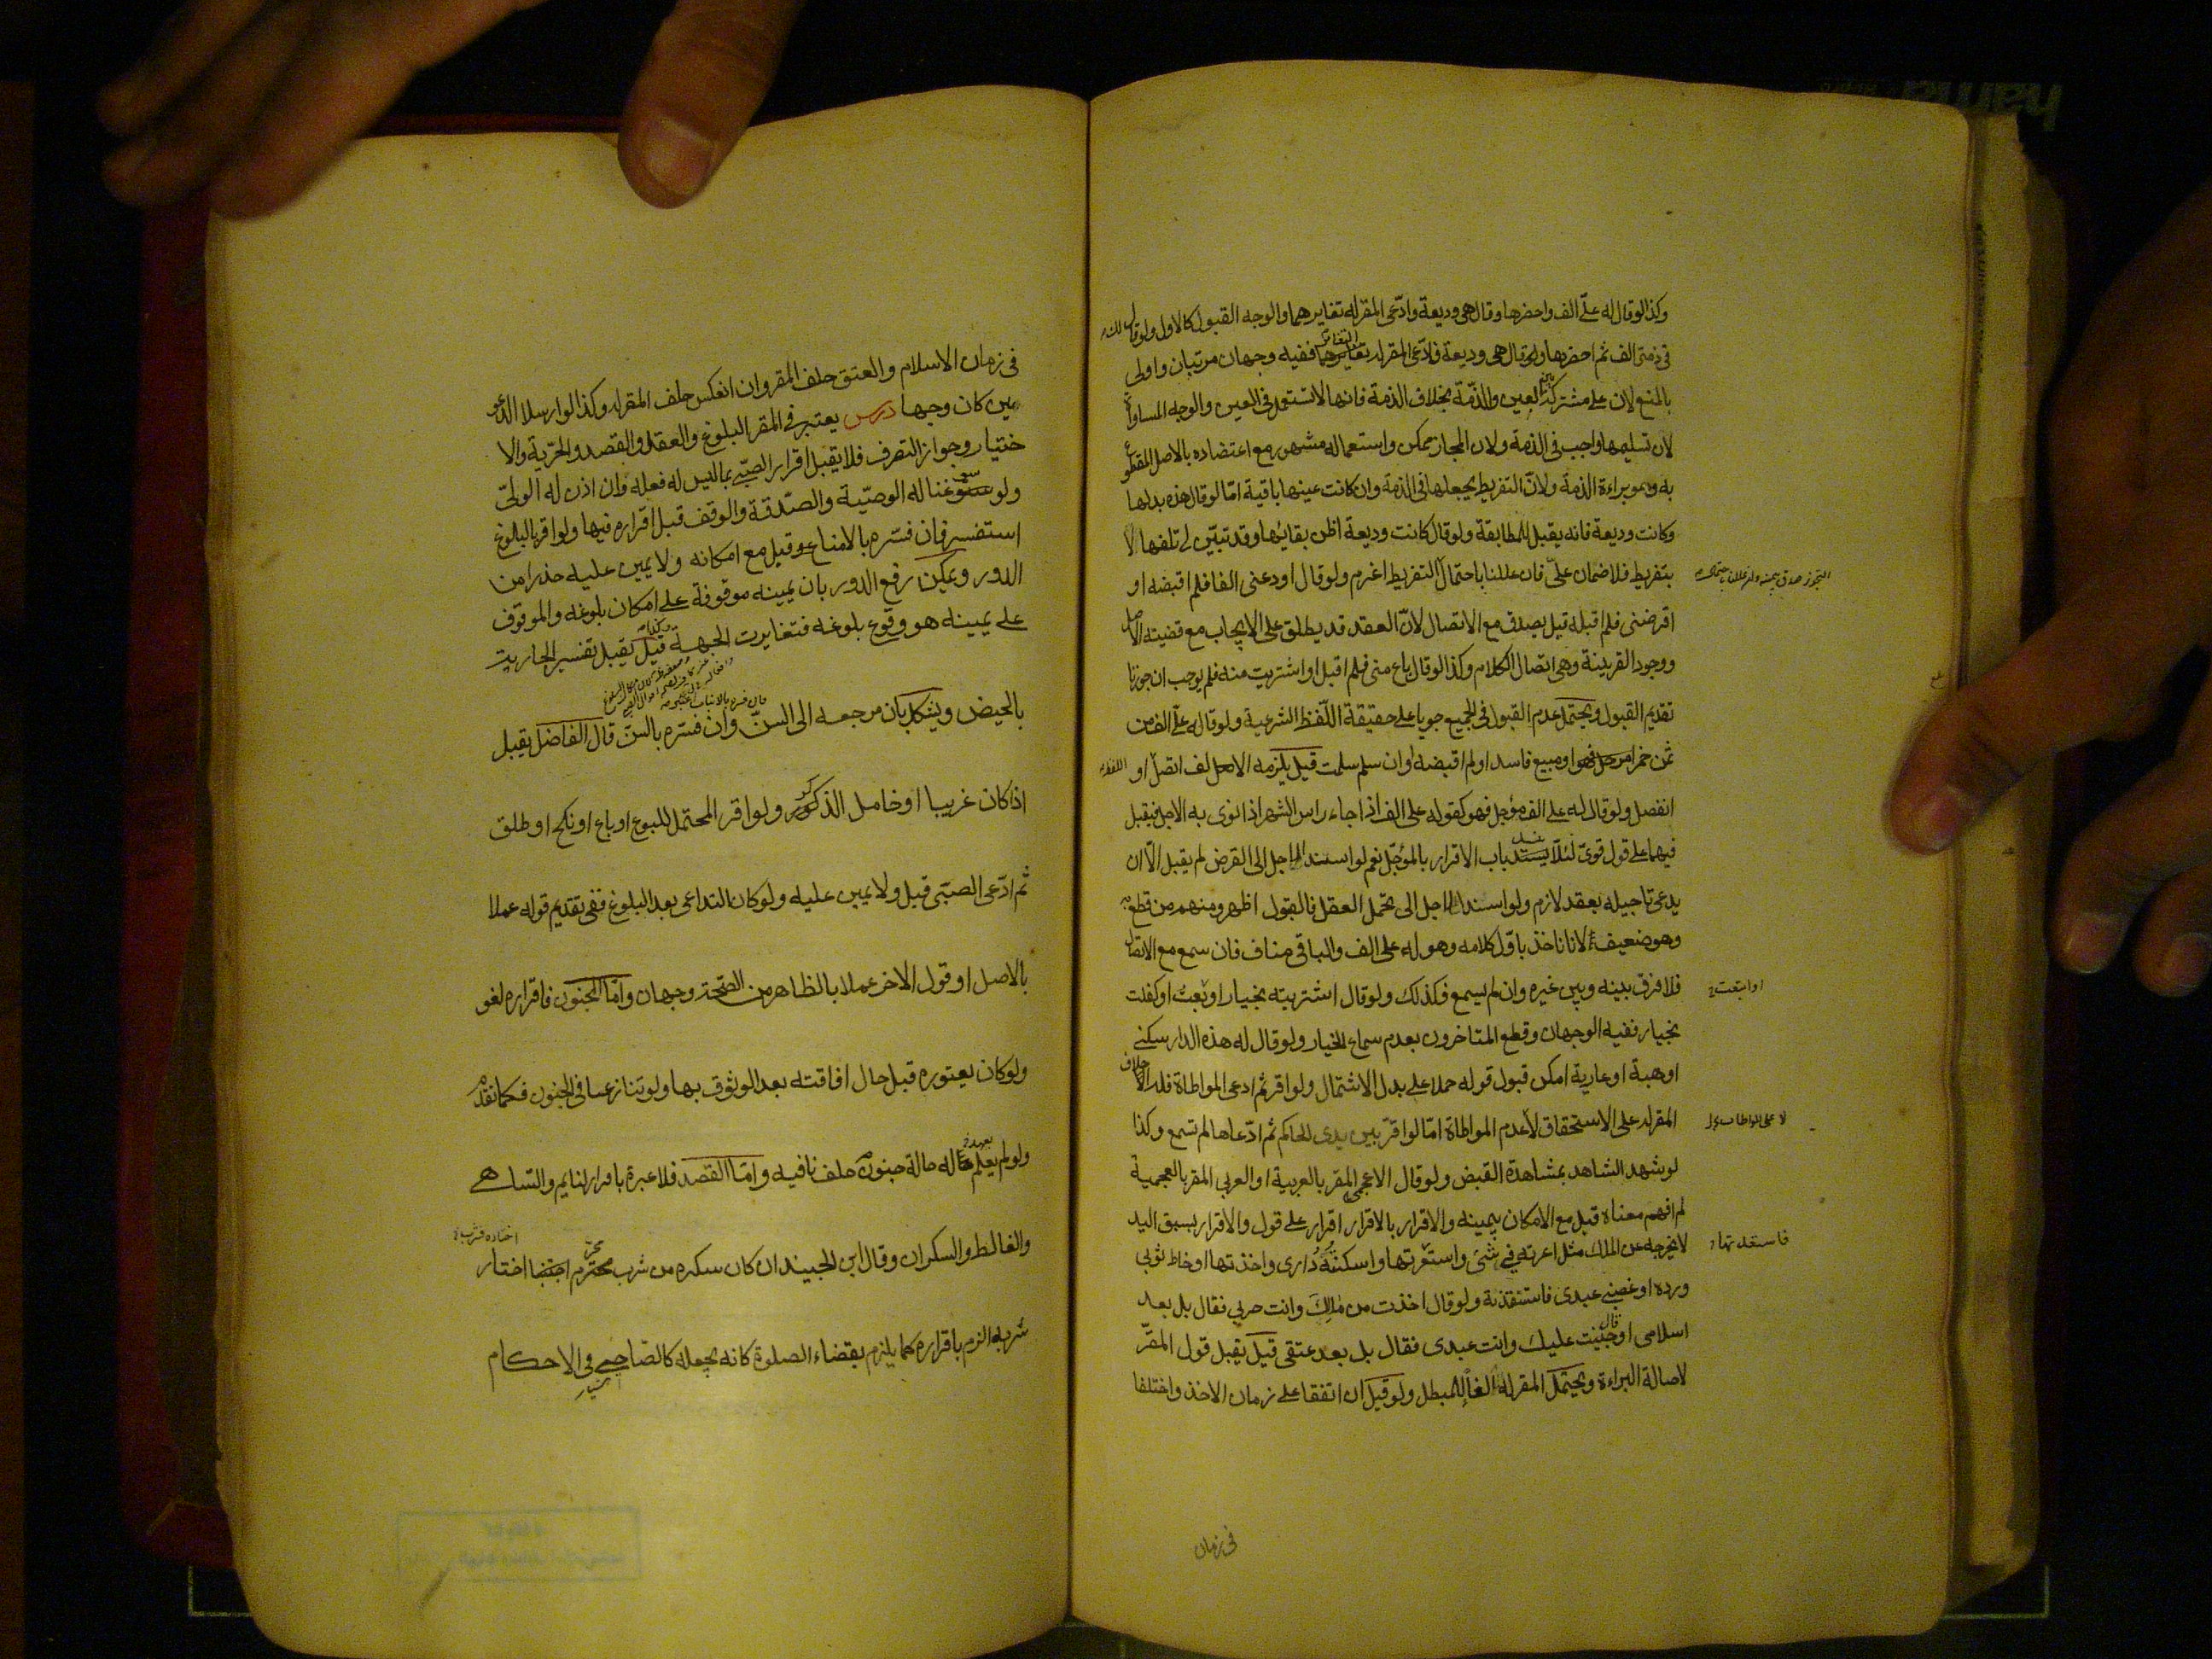 وكذا لو قال له على الف واحضرها وقال هي وديعة وادعى المقر له تغايرهما والوجه القبول كالاول ولو قال لك
في ذمتى الف ثم احضرها وقال هي وديعة فادعى المقر له تغايرهما ففيه وجهان مرتبان واولى
بالمنع لان على مشتركة بين العين والذمة بخلاف الذمة فانها لا تستعمل في العين والوجه المساواة
لان تسليمها واجب في الذمة ولان المجاز ممكن واستعماله مشهور مع اعتضاده بالاصل المقطوع
به وهو براءة الذمة ولان التفريط يجعلها في الذمة وان كانت عينها باقية اما لو قال هذه بدلها
وكانت وديعة فانه يقبل للمطابقة ولو قال كانت وديعة اظن بقائها وقد تبين لى تلفها لا
بتفريط فلا ضمان على فان عللنا باحتمال التفريط اغرم ولو قال اودعنى الفا فلم اقبضه او
اقرضنى فلم اقبله قيل يصدق مع الاتصال لان العقد قد يطلق على الايجاب مع قضيته الاصل
ووجود القرينة وهي اتصال الكلام وكذا لو قال باع منى فلم اقبل او اشتريت منه فلم يوجب ان جوزنا
تقديم القبول ويحتمل عدم القبول في الجميع جريا على حقيقة اللفظ الشرعية ولو قال له على الف من
ثمن خمر او مبيع فاسد او لم اقبضه او ان سلم سلمت قيل يلزمه الالف اتصل اللفظ او
انفصل ولو قال له على الف مؤجل فهو كقوله على الف اذا جاء راس الشهر اذا نوى به الاجل فيقبل
فيهما على قول قوى لئلا ينسد باب الاقرار بالمؤجل نعم لو اسند الاجل الى القرض لم يقبل الا ان
يدعى تاجيله بعقد لازم ولو اسند الاجل الى تحمل العقل فالقبول اظهر ومنهم من قطع به
وهو ضعيف لانا ناخذ باول كلامه وهو له على الف والباقى مناف فان سمع مع الاتصال
فلا فرق بينه وبين غيره وان لم يسمع فكذلك ولو قال اشتريته بخيار او بعت او كفلت
بخيار ففيه الوجهان وقطع المتاخرون بعدم سماع الخيار ولو قال له هذه الدار سكنى
او هبة او عارية امكن قبول قوله حملا على بدل الاشتمال ولو اقر ثم ادعى المواطاة فله احلاف
المقر له على الاستحقاق لا عدم المواطاة اما لو اقر بين يدى الحاكم ثم ادعاها لم تسمع وكذا
لو شهد الشاهد بمشاهدة القبض ولو قال الاعجمي المقر بالعربية او العربي المقر بالعجمية
لم افهم معناه قبل مع الامكان بيمينه والاقرار بالاقرار اقرار على قول والاقرار بسبق اليد
لا يخرجه عن الملك مثل اعرته في شيء واستعرتها واسكنته دارى واخذتها او خاط ثوبي
ورده او غصبنى عبدى فاستنقذته ولو قال اخذت من مالك وانت حربي فقال بل بعد
اسلامى او قال جنيت عليك وانت عبدى فقال بل بعد عتقى قيل يقبل قول المقر
لاصالة البراءة ويحتمل المقر له الغاء للمبطل ولو قيل ان اتفقا على زمان الاخذ واختلفا
او ابتعت
فاستعدتها
في زمان
في زمان الاسلام والعتق حلف المقر وان انعكس حلف المقر له وكذا لو ارسلا الدعو
يين كان وجها درس يعتبر في المقر البلوغ والعقل والقصد والحرية والا
ختيار وجواز التصرف فلا يقبل اقرار الصبي بما ليس له فعله وان اذن له الولى
ولو سوغنا له الوصية والصدقة والوقف قبل اقراره فيها ولو اقر بالبلوغ
استفسر فان فسره بالامناء قبل مع امكانه ولا يمين عليه حذرا من
الدور ويمكن رفع الدور بان يمينه موقوفة على امكان بلوغه والموقوف
على يمينه هو وقوع بلوغه فتغايرت الجهة قيل يقبل تفسير الجاريت
بالحيض ويشكل بان مرجعه الى السن وان فسره بالسن قال الفاضل يقبل
اذا كان غريبا او خامل الذكر ولو اقر المحتمل للبلوغ او باع او نكح او طلق
ثم ادعى الصبى قبل ولا يمين عليه ولو كان التداعى بعد البلوغ ففى تقديم قوله عملا
بالاصل او قول الاخر عملا بالظاهر من الصحة وجهان واما المجنون فاقراره لغو
ولو كان يعتوره قبل حال افاقته بعد الوثوق بها ولو تنازعا في الجنون فكما تقدم
ولو لم يعهد له حالة جنون حلف نافيه واما القصد فلا عبرة باقرار النايم والساهى
والغالط والسكران وقال ابن الجنيد ان كان سكره من شرب محرم اختار
شربه الزم باقراره كما يلزم بقضاء الصلوة كانه يجعله كالصاحى في الاحكام